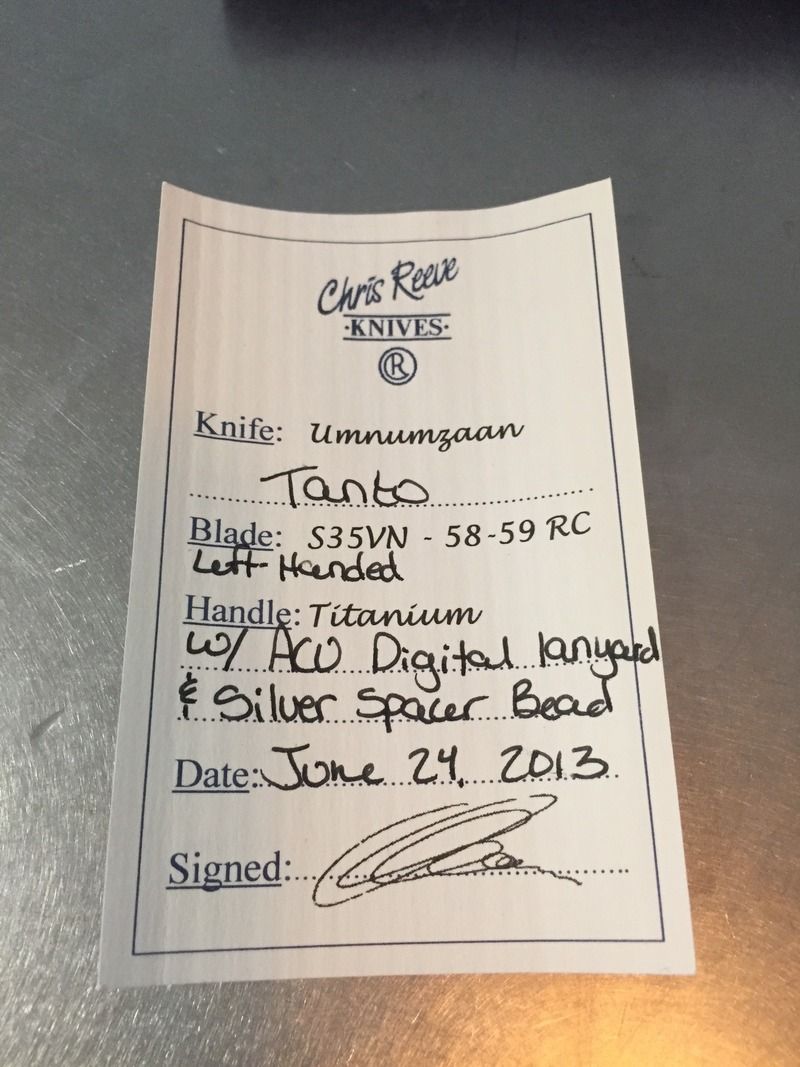 Chris Reeve
·KNIVES·
®
Knife: Umnumzaan
Tanto
Blade: S35VN - 58-59 RC
Left-Handed
Handle: Titanium
w/ ACU Digital lanyard
& Silver Spacer Bead
Date: June 24, 2013
Signed: